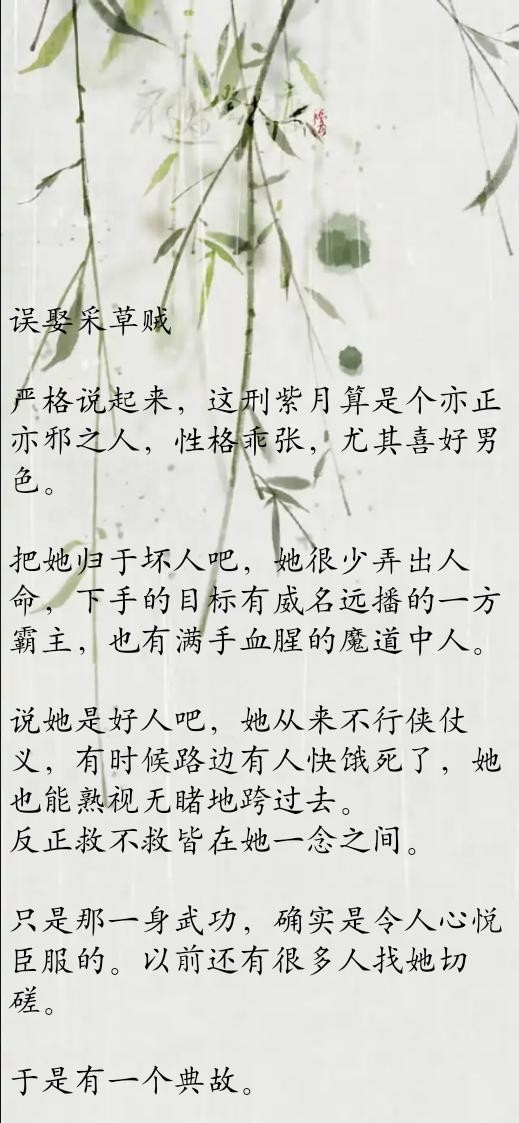 误娶采草贼
严格说起来，这刑紫月算是个亦正
亦邪之人，性格乖张，尤其喜好男
色。
把她归于坏人吧，她很少弄出人
命，下手的目标有威名远播的一方
霸主，也有满手血腥的魔道中人。
说她是好人吧，她从来不行侠仗
义，有时候路边有人快饿死了，她
也能熟视无睹地跨过去。
反正救不救皆在她一念之间。
只是那一身武功，确实是令人心悦
臣服的。以前还有很多人找她切
磋。
于是有一个典故。